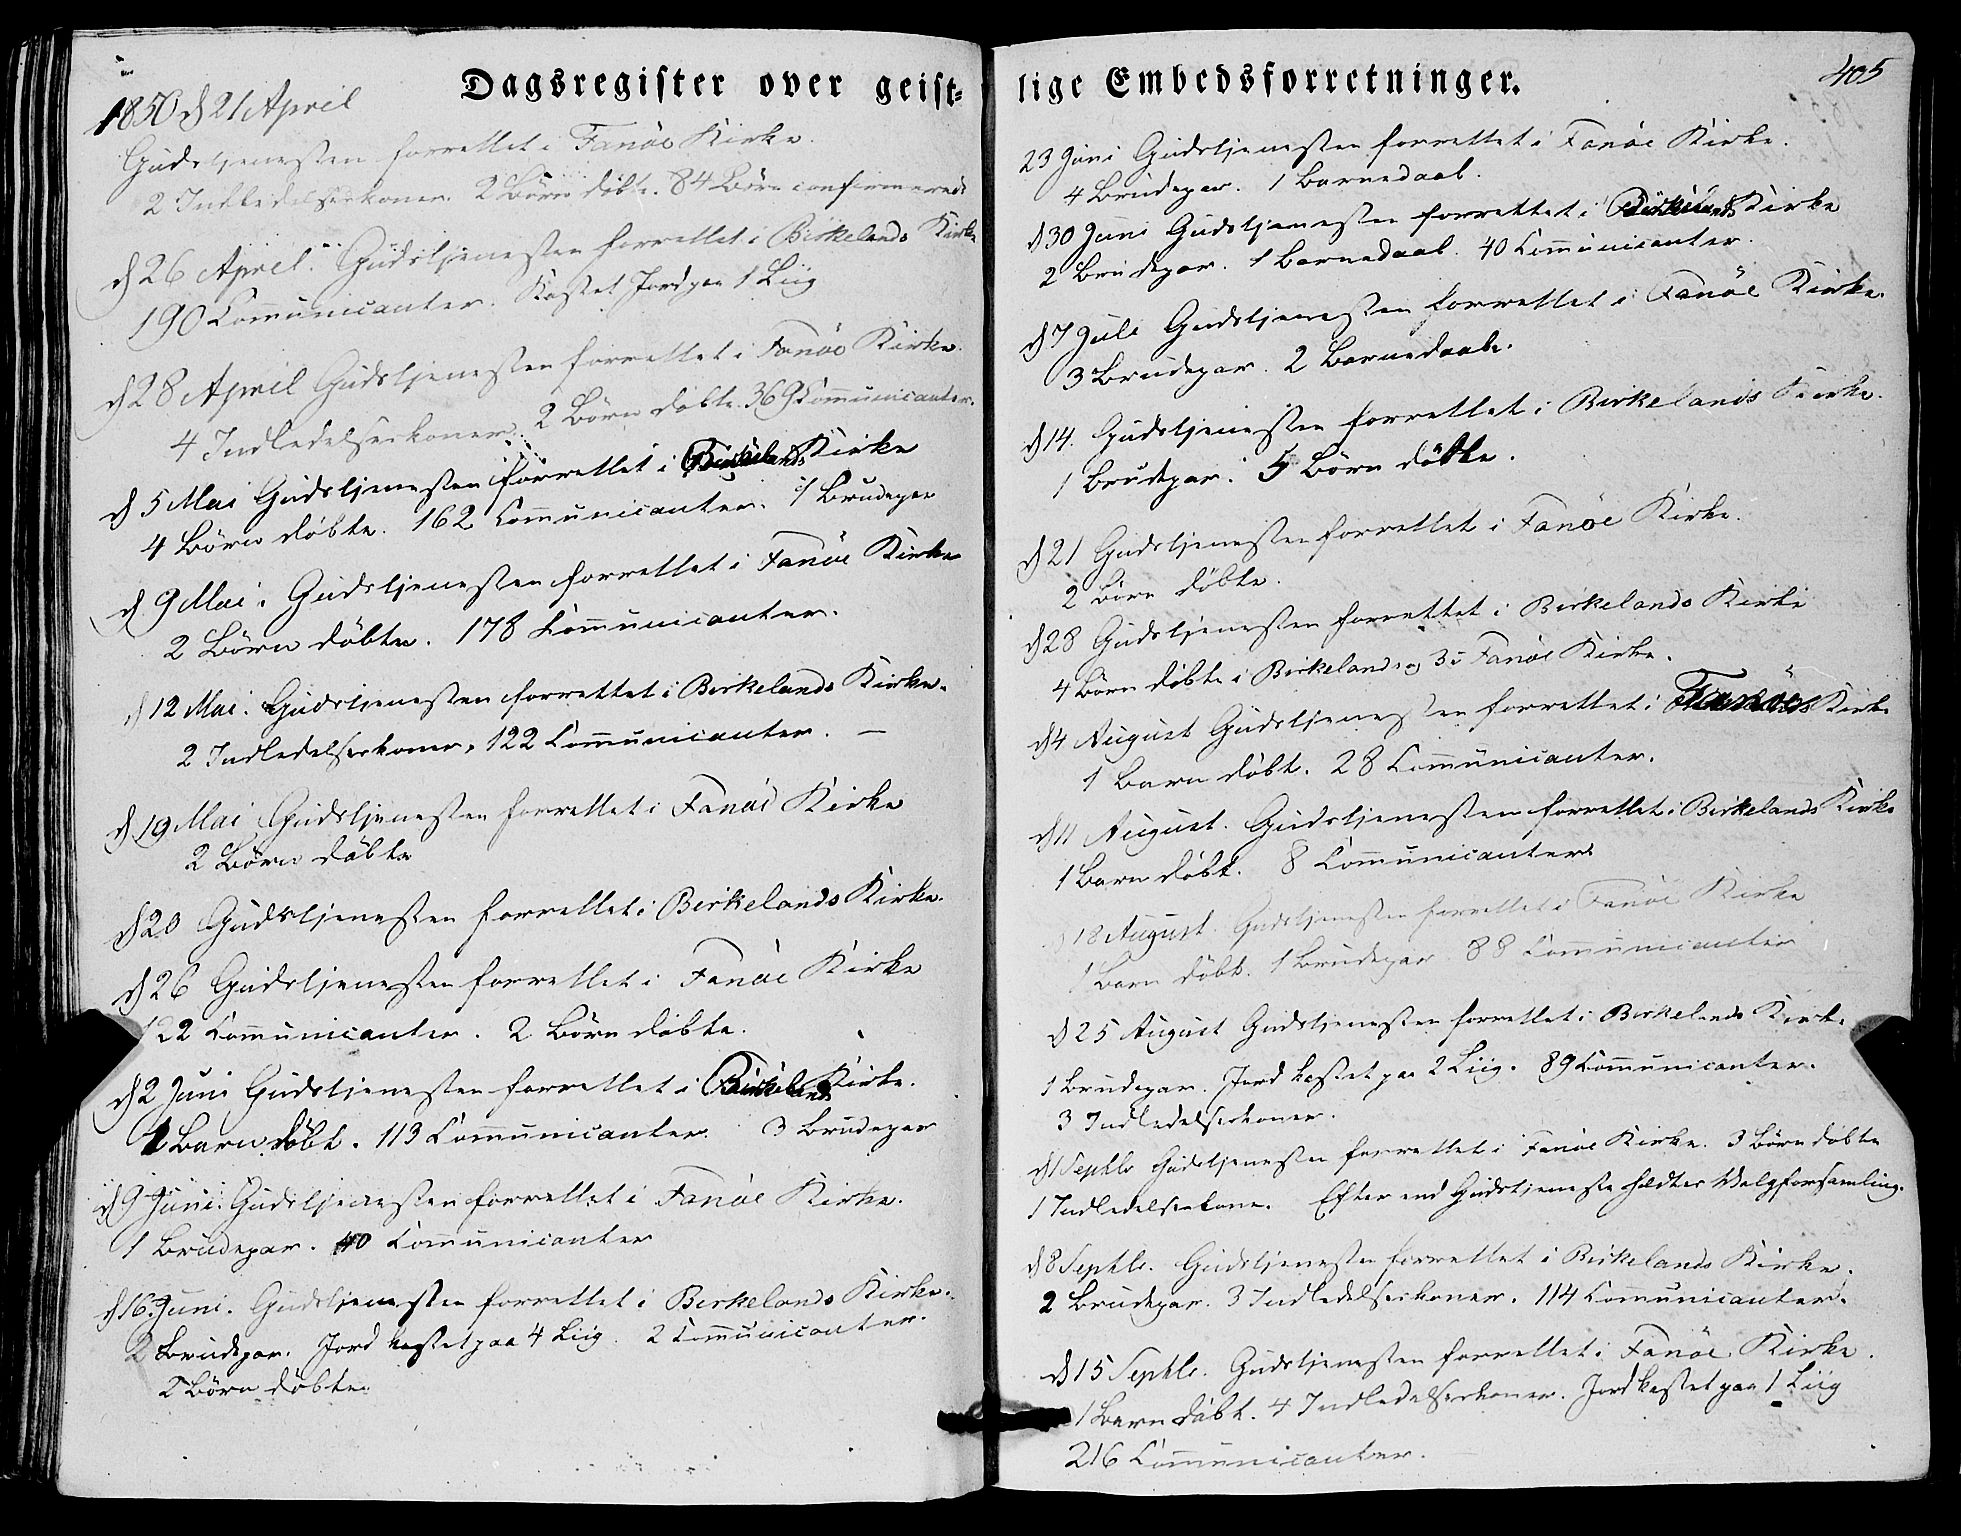 Dagsregister over geist-
1850 d 21 April
Gudstjenesten forrettet i Fanöe Kirke.
2 Indledelseskoner. 2 Börn döbte. 84 Börn confirmerede
d 26 April. Gudstjenesten forrettet i Birkelands Kirke
190 Communicanter. Kastet Jord paa 1 Liig
d 28 April Gudstjenesten forrettet i Fanöe Kirke.
4 Indledelseskoner. 2 Börn döbte. 369 Communicanter.
d 5 Mai Gudstjenesten forrettet i Birkelands Kirke
4 Börn döbte. 162 Communicanter. 1 Brudepar
d. 9 Mai. Gudstjenesten forrettet i Fanöe Kirke
2 Börn döbte. 178 Communicanter.
d 12 Mai. Gudstjenesten forrettet i Birkelands Kirke.
2 Indledelseskoner, 122 Communicanter. —
d. 19 Mai Gudstjenesten forrettet i Fanöe Kirke
2 Börn döbte
d 20 Gudstjenesten forrettet i Birkelands Kirke.
d 26 Gudstjenesten forrettet i Fanöe Kirke
122 Communicanter. 2 Börn döbte.
d 2 Juni Gudstjenesten forrettet i Birkelands Kirke.
1 Barn döbt. 113 Communicanter. 3 Brudepar
d 9 Juni. Gudstjenesten forrettet i Fanöe Kirke.
1 Brudepar. 40 Communicanter
d 16. Juni. Gudstjenesten forrettet i Birkelands Kirke.
2 Brudepar. Jord kastet paa 4 Liig. 2 Communicanter.
2 Börn döbte.
lige Embedsforretninger.
405
23 Juni Gudstjenesten forrettet i Fanöe Kirke.
4 Brudepar. 1 Barnedaab.
d 30 Juni Gudstjenesten forrettet i Birkelands Kirke
2 Brudepar. 1 Barnedaab. 40 Communicanter.
d 7 Juli Gudstjenesten forrettet i Fanöe Kirke.
3 Brudepar. 2 Barnedaabe.
d 14. Gudstjenesten forrettet i Birkelands Kirke.
1 Brudepar. 5 Börn döbte.
d 21 Gudstjenesten forrettet i Fanöe Kirke.
2 Börn döbte.
d 28 Gudstjenesten forrettet i Birkelands Kirke
4 Börn döbte i Birkelands og 3 i Fanöe Kirke.
d 4 August Gudstjenesten forrettet i Fanöe Kirke
1 Barn döbt. 28 Communicanter.
d 11 August. Gudstjenesten forrettet i Birkelands Kirke
1 Barn döbt. 8 Communicanter
d 18 August. Gudstjenesten forrettet i Fanöe Kirke
1 Barn döbt. 1 Brudepar 88 Communicanter
d 25 August Gudstjenesten forrettet i Birkelands Kirke.
1 Brudepar. Jord kastet paa 2 Liig. 89 Communicanter.
3 Indledelseskoner.
d 1 Septbr Gudstjenesten forrettet i Fanöe Kirke. 3 Börn döbte
1 Indledelseskone. Efter end Gudstjeneste holdtes Valgforsamling.
d 8 Septbr. Gudstjenesten forrettet i Birkelands Kirke.
2 Brudepar. 3 Indledelseskoner. 114 Communicanter.
d 15 Septbr. Gudstjenesten forrettet i Fanöe Kirke.
1 Barn döbt. 4 Indledelseskoner. Jord kastet paa 1 Liig
216 Communicanter.